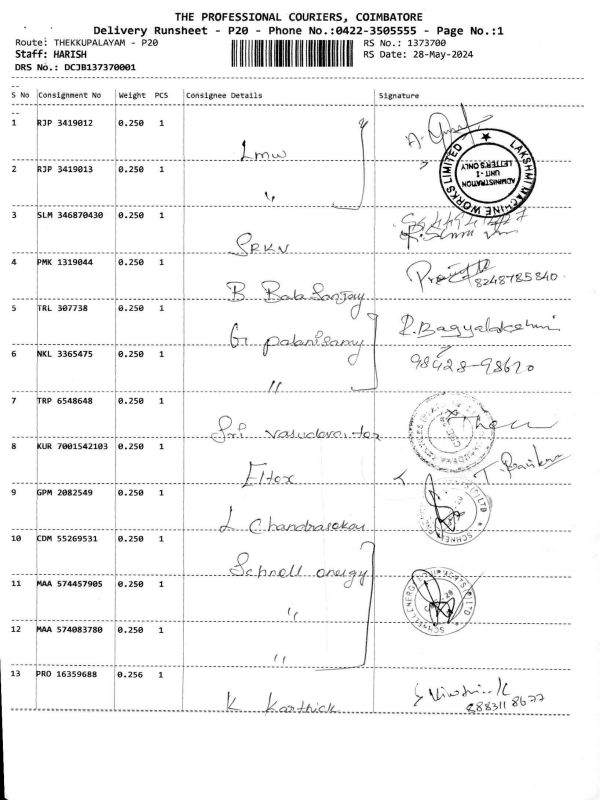 THE PROFESSIONAL COURIERS, COIMBATORE
Delivery Runsheet - P20 - Phone No.:0422-3505555 - Page No.:1
Route: THEKKUPALAYAM - P20 RS No.: 1373700
Staff: HARISH RS Date: 28-May-2024
DRS No.: DCJB137370001
S No Consignment No Weight PCS Consignee Details Signature
1 RJP 3419012 0.250 1
Lmw
2 RJP 3419013 0.250 1
"
LAKSHMI MACHINE WORKS LIMITED
ADMINISTRATION
UNIT - I
LETTER'S ONLY
3 SLM 346870430 0.250 1
SRKV
4 PMK 1319044 0.250 1
B. Bala Sanjay 8248785840
5 TRL 307738 0.250 1
G. palanisamy R. Bagyalakshmi
6 NKL 3365475 0.250 1 98428-98670
"
7 TRP 6548648 0.250 1
Sri vasudeva tex
8 KUR 7001542103 0.250 1
Eltex
9 GPM 2082549 0.250 1
L Chandrasekar
10 CDM 55269531 0.250 1
Schnell energy
11 MAA 574457905 0.250 1
"
12 MAA 574083780 0.250 1
"
13 PRO 16359688 0.256 1
K Karthick